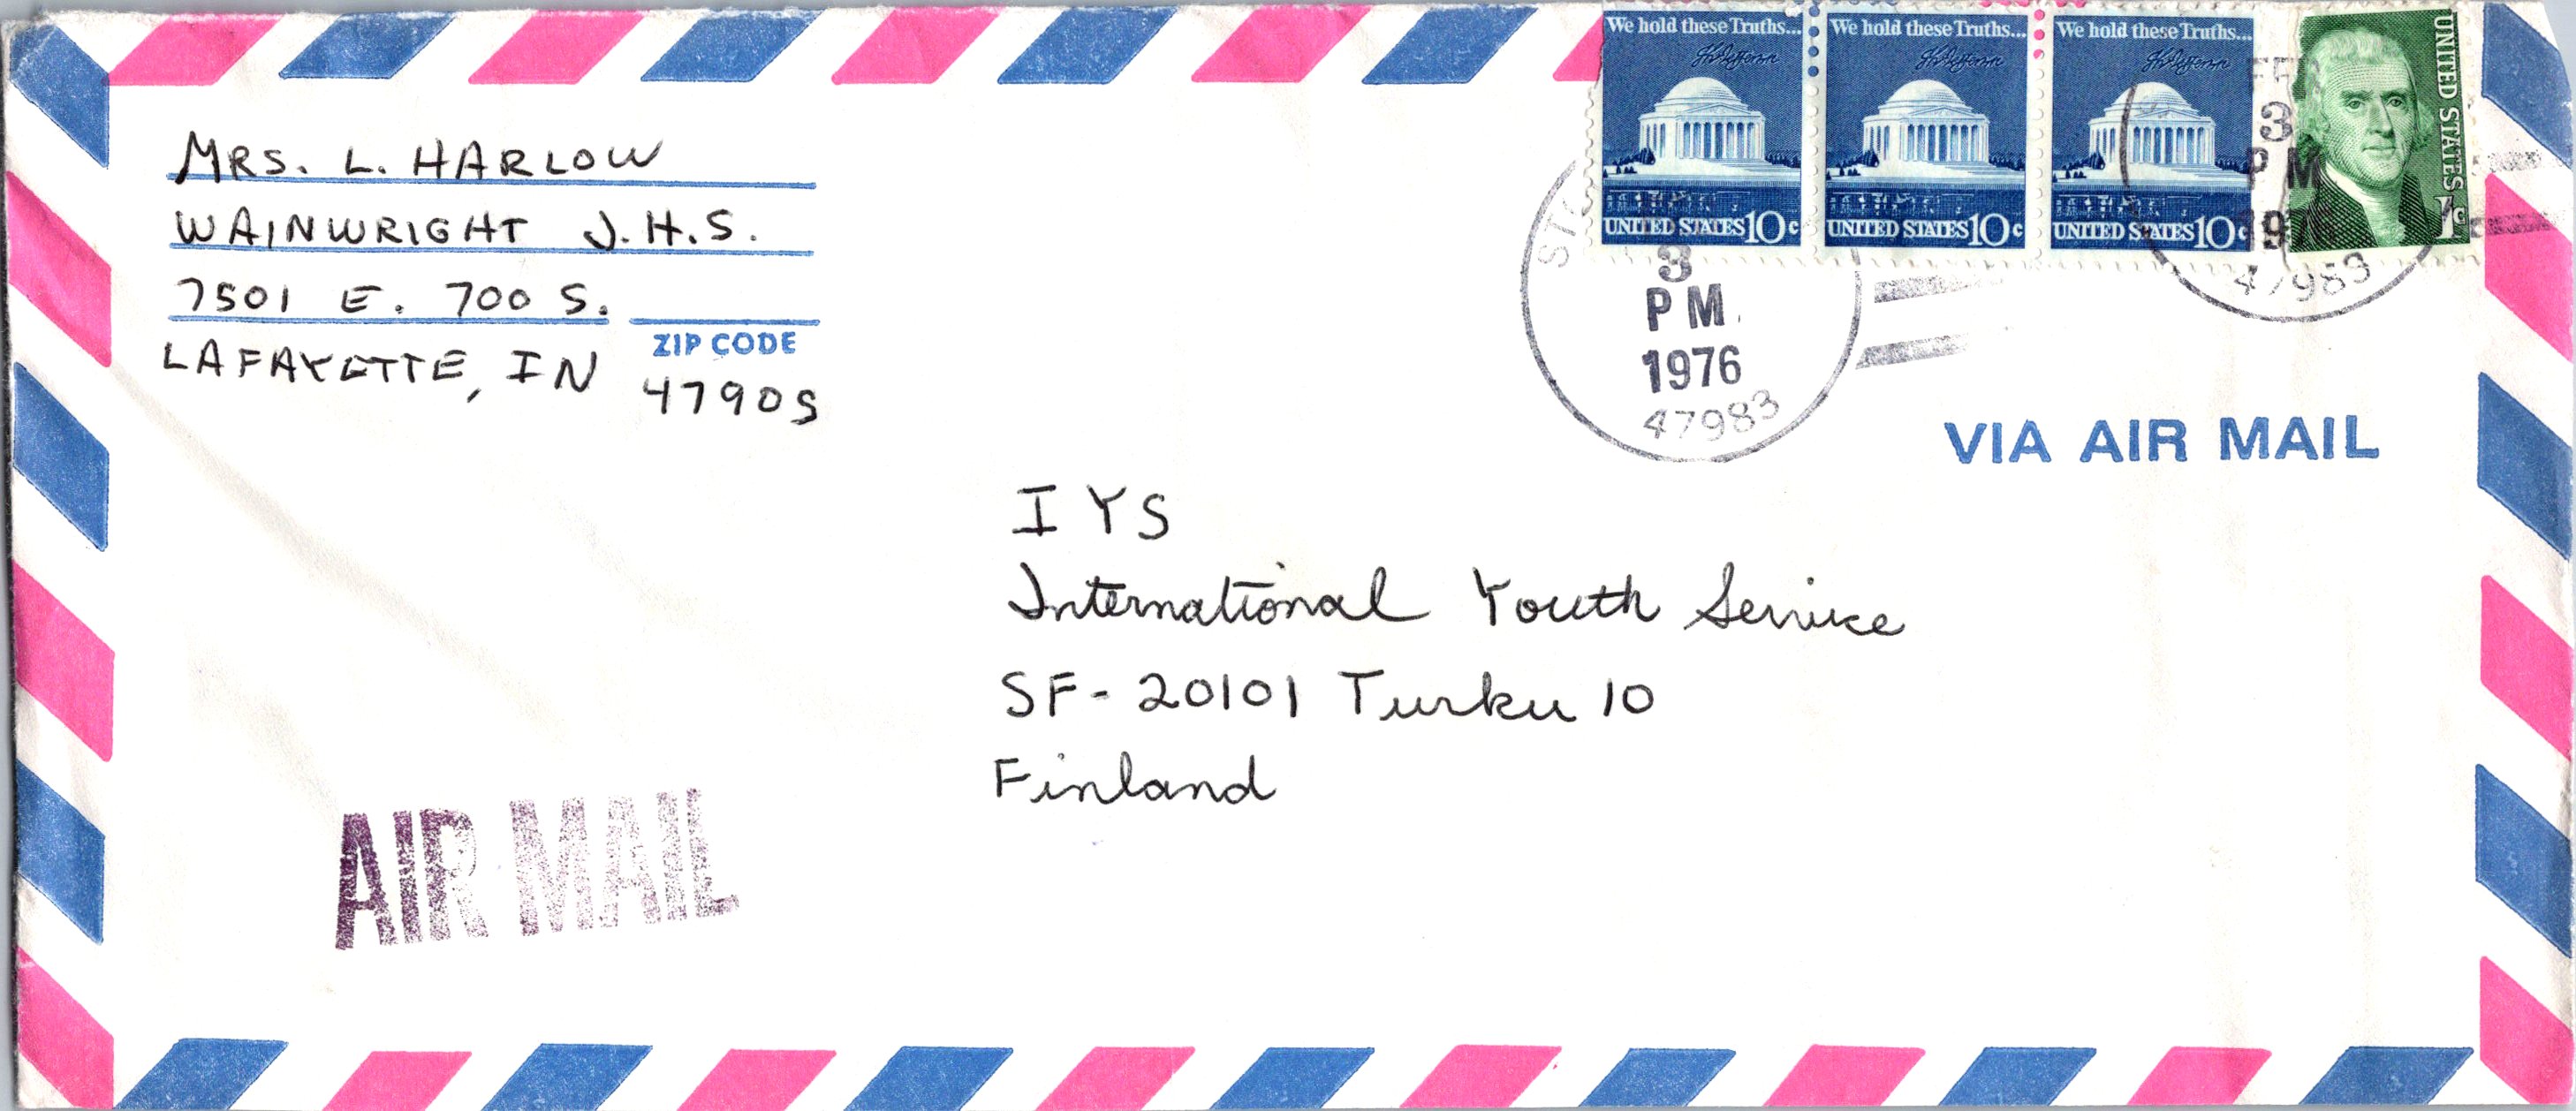 MRS. L. HARLOW
WAINWRIGHT J.H.S.
7501 E. 700 S.
ZIP CODE
LAFAYETTE, IN 47905
We hold these Truths...
UNITED STATES 10c
We hold these Truths...
UNITED STATES 10c
We hold these Truths...
UNITED STATES 10c
UNITED STATES 1c
3
PM
1976
47983
3
PM
1976
47983
VIA AIR MAIL
IYS
International Youth Service
SF-20101 Turku 10
Finland
AIR MAIL